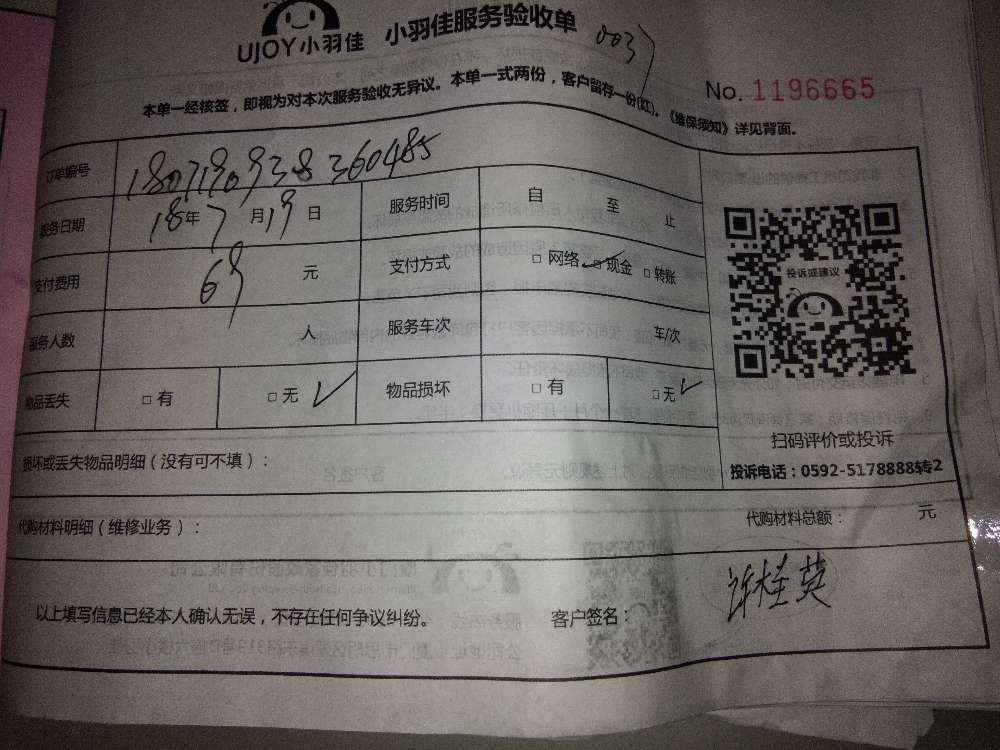 UJOY小羽佳 小羽佳服务验收单 0037
No. 1196665
本单一经核签，即视为对本次服务验收无异议。本单一式两份，客户留存一份(红)。《维保须知》详见背面。
订单编号 1807190938360485
服务日期 18年 7 月 19 日 服务时间 自 至 止
支付费用 69 元 支付方式 □ 网络 □ 现金 □ 转账
服务人数 人 服务车次 车/次
物品丢失 □ 有 □ 无 ✓ 物品损坏 □ 有 □ 无 ✓
投诉或建议
扫码评价或投诉
投诉电话：0592-5178888转2
损坏或丢失物品明细（没有可不填）：
代购材料明细（维修业务）： 代购材料总额： 元
以上填写信息已经本人确认无误，不存在任何争议纠纷。 客户签名： 许桂英